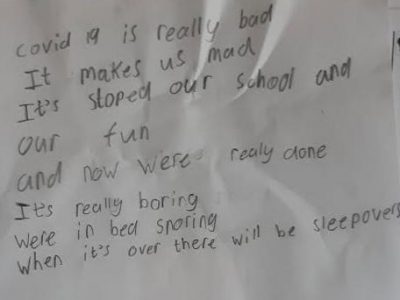 covid 19 is really bad
It makes us mad
It's stoped our school and
our fun
and now were realy done
Its really boring
were in bed snoring
when it's over there will be sleepovers